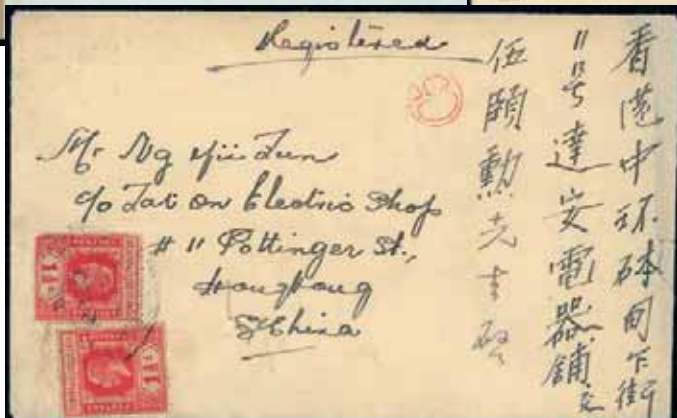 Registered
Mr Ng Yii Jun
c/o Tat On Electric Shop
# 11 Pottinger St.,
Hong Kong
S China
香港中环砵甸乍街
11号達安電器舖交
伍頤勳先生啓